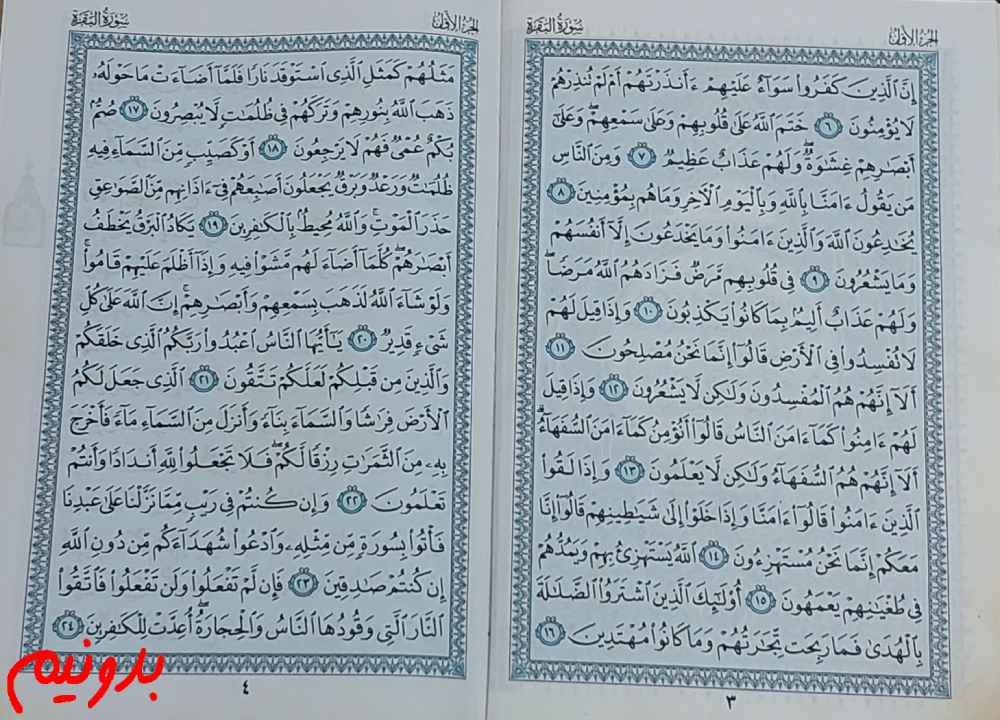 الجزء الأول
سورة البقرة
إِنَّ ٱلَّذِينَ كَفَرُوا۟ سَوَآءٌ عَلَيْهِمْ ءَأَنذَرْتَهُمْ أَمْ لَمْ تُنذِرْهُمْ
لَا يُؤْمِنُونَ ٦ خَتَمَ ٱللَّهُ عَلَىٰ قُلُوبِهِمْ وَعَلَىٰ سَمْعِهِمْ ۖ وَعَلَىٰٓ
أَبْصَٰرِهِمْ غِشَٰوَةٌ ۖ وَلَهُمْ عَذَابٌ عَظِيمٌ ٧ وَمِنَ ٱلنَّاسِ
مَن يَقُولُ ءَامَنَّا بِٱللَّهِ وَبِٱلْيَوْمِ ٱلْءَاخِرِ وَمَا هُم بِمُؤْمِنِينَ ٨
يُخَٰدِعُونَ ٱللَّهَ وَٱلَّذِينَ ءَامَنُوا۟ وَمَا يَخْدَعُونَ إِلَّآ أَنفُسَهُمْ
وَمَا يَشْعُرُونَ ٩ فِى قُلُوبِهِم مَّرَضٌ فَزَادَهُمُ ٱللَّهُ مَرَضًا ۖ
وَلَهُمْ عَذَابٌ أَلِيمٌۢ بِمَا كَانُوا۟ يَكْذِبُونَ ١٠ وَإِذَا قِيلَ لَهُمْ
لَا تُفْسِدُوا۟ فِى ٱلْأَرْضِ قَالُوٓا۟ إِنَّمَا نَحْنُ مُصْلِحُونَ ١١
أَلَآ إِنَّهُمْ هُمُ ٱلْمُفْسِدُونَ وَلَٰكِن لَّا يَشْعُرُونَ ١٢ وَإِذَا قِيلَ
لَهُمْ ءَامِنُوا۟ كَمَآ ءَامَنَ ٱلنَّاسُ قَالُوٓا۟ أَنُؤْمِنُ كَمَآ ءَامَنَ ٱلسُّفَهَآءُ ۗ
أَلَآ إِنَّهُمْ هُمُ ٱلسُّفَهَآءُ وَلَٰكِن لَّا يَعْلَمُونَ ١٣ وَإِذَا لَقُوا۟
ٱلَّذِينَ ءَامَنُوا۟ قَالُوٓا۟ ءَامَنَّا وَإِذَا خَلَوْا۟ إِلَىٰ شَيَٰطِينِهِمْ قَالُوٓا۟ إِنَّا
مَعَكُمْ إِنَّمَا نَحْنُ مُسْتَهْزِءُونَ ١٤ ٱللَّهُ يَسْتَهْزِئُ بِهِمْ وَيَمُدُّهُمْ
فِى طُغْيَٰنِهِمْ يَعْمَهُونَ ١٥ أُو۟لَٰٓئِكَ ٱلَّذِينَ ٱشْتَرَوُا۟ ٱلضَّلَٰلَةَ
بِٱلْهُدَىٰ فَمَا رَبِحَت تِّجَٰرَتُهُمْ وَمَا كَانُوا۟ مُهْتَدِينَ ١٦
٣
الجزء الأول
سورة البقرة
مَثَلُهُمْ كَمَثَلِ ٱلَّذِى ٱسْتَوْقَدَ نَارًا فَلَمَّآ أَضَآءَتْ مَا حَوْلَهُۥ
ذَهَبَ ٱللَّهُ بِنُورِهِمْ وَتَرَكَهُمْ فِى ظُلُمَٰتٍ لَّا يُبْصِرُونَ ١٧ صُمٌّۢ
بُكْمٌ عُمْىٌ فَهُمْ لَا يَرْجِعُونَ ١٨ أَوْ كَصَيِّبٍ مِّنَ ٱلسَّمَآءِ فِيهِ
ظُلُمَٰتٌ وَرَعْدٌ وَبَرْقٌ يَجْعَلُونَ أَصَٰبِعَهُمْ فِىٓ ءَاذَانِهِم مِّنَ ٱلصَّوَٰعِقِ
حَذَرَ ٱلْمَوْتِ ۚ وَٱللَّهُ مُحِيطٌۢ بِٱلْكَٰفِرِينَ ١٩ يَكَادُ ٱلْبَرْقُ يَخْطَفُ
أَبْصَٰرَهُمْ ۖ كُلَّمَآ أَضَآءَ لَهُم مَّشَوْا۟ فِيهِ وَإِذَآ أَظْلَمَ عَلَيْهِمْ قَامُوا۟ ۚ
وَلَوْ شَآءَ ٱللَّهُ لَذَهَبَ بِسَمْعِهِمْ وَأَبْصَٰرِهِمْ ۚ إِنَّ ٱللَّهَ عَلَىٰ كُلِّ
شَىْءٍ قَدِيرٌ ٢٠ يَٰٓأَيُّهَا ٱلنَّاسُ ٱعْبُدُوا۟ رَبَّكُمُ ٱلَّذِى خَلَقَكُمْ
وَٱلَّذِينَ مِن قَبْلِكُمْ لَعَلَّكُمْ تَتَّقُونَ ٢١ ٱلَّذِى جَعَلَ لَكُمُ
ٱلْأَرْضَ فِرَٰشًا وَٱلسَّمَآءَ بِنَآءً وَأَنزَلَ مِنَ ٱلسَّمَآءِ مَآءً فَأَخْرَجَ
بِهِۦ مِنَ ٱلثَّمَرَٰتِ رِزْقًا لَّكُمْ ۖ فَلَا تَجْعَلُوا۟ لِلَّهِ أَندَادًا وَأَنتُمْ
تَعْلَمُونَ ٢٢ وَإِن كُنتُمْ فِى رَيْبٍ مِّمَّا نَزَّلْنَا عَلَىٰ عَبْدِنَا
فَأْتُوا۟ بِسُورَةٍ مِّن مِّثْلِهِۦ وَٱدْعُوا۟ شُهَدَآءَكُم مِّن دُونِ ٱللَّهِ
إِن كُنتُمْ صَٰدِقِينَ ٢٣ فَإِن لَّمْ تَفْعَلُوا۟ وَلَن تَفْعَلُوا۟ فَٱتَّقُوا۟
ٱلنَّارَ ٱلَّتِى وَقُودُهَا ٱلنَّاسُ وَٱلْحِجَارَةُ ۖ أُعِدَّتْ لِلْكَٰفِرِينَ ٢٤
٤
بدونیم